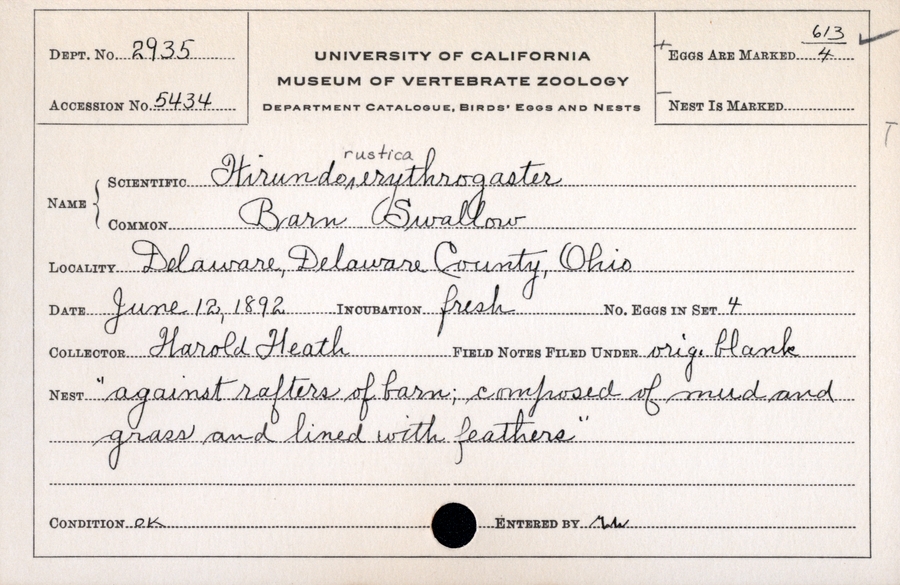 DEPT. No. 2935
ACCESSION No. 5434
UNIVERSITY OF CALIFORNIA
MUSEUM OF VERTEBRATE ZOOLOGY
DEPARTMENT CATALOGUE, BIRDS' EGGS AND NESTS
+ EGGS ARE MARKED 613/4 ✓
— NEST IS MARKED
T
NAME { SCIENTIFIC Hirundo ‸rustica erythrogaster
COMMON Barn Swallow
LOCALITY Delaware, Delaware County, Ohio
DATE June 12, 1892 INCUBATION fresh NO. EGGS IN SET 4
COLLECTOR Harold Heath FIELD NOTES FILED UNDER orig. blank
NEST "against rafters of barn; composed of mud and
grass and lined with feathers"
CONDITION OK ENTERED BY